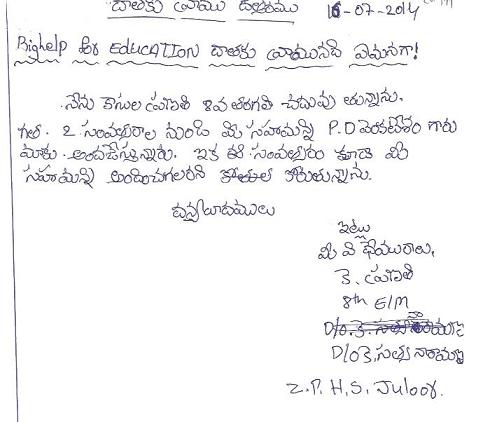 దాతకు వ్రాయు ఉత్తరము 16-07-2014
Bighelp for EDUCATION దాతకు వ్రాయునది ఏమనగా!
నేను కాసుల ప్రణతి 8వ తరగతి చదువు తున్నాను.
గత. 2 సంవత్సరాల నుండి మీ సహాయాన్ని P.D వెంకటేశం గారు
మాకు అందజేస్తున్నారు. ఇక ఈ సంవత్సరం కూడా మీ
సహాయాన్ని అందించగలరని కోరుతున్నాను.
ధన్యవాదములు
ఇట్లు
మీ విధేయురాలు,
కె. ప్రణతి
8th E/M
D/o కె. సత్యనారాయణ
Z.P.H.S. Juloor.